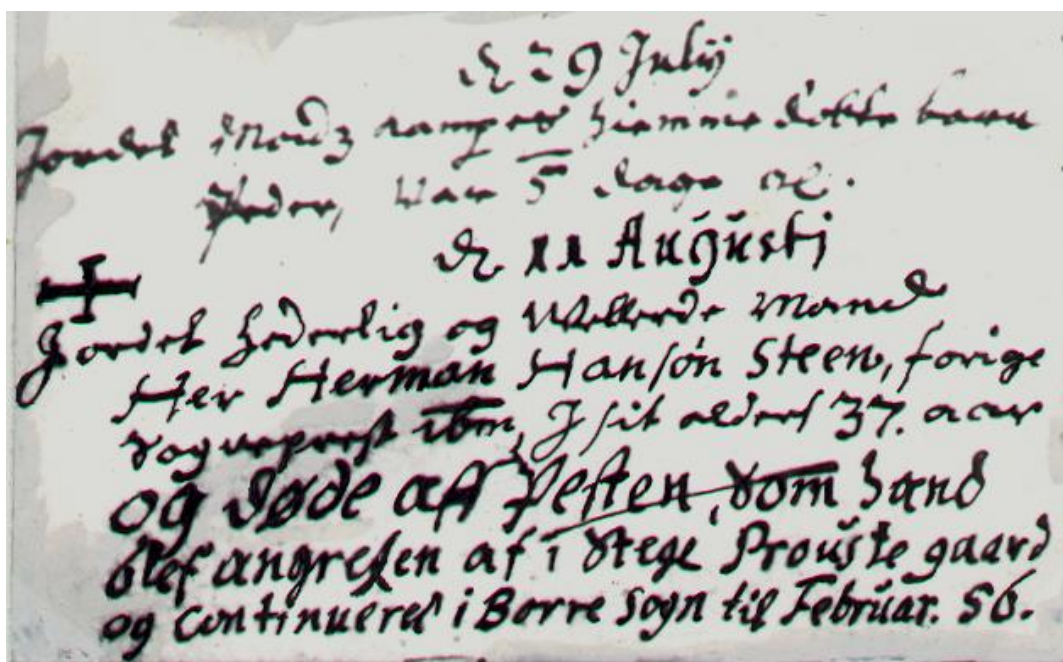 d 29 Julij
Jordet Madz hiemmedøbte barn
Peder, war 5 dage gl.
d 11 Augusti
Jordet hederlig og Wellerde Mand
Her Herman Hansøn Steen, forige
sogneprest ibm, J sit alders 37. aar
og døde aff Pesten, som hand
blef angrefen af i Stege Prouste gaard
og continueret i Borre sogn til Februar. 56.